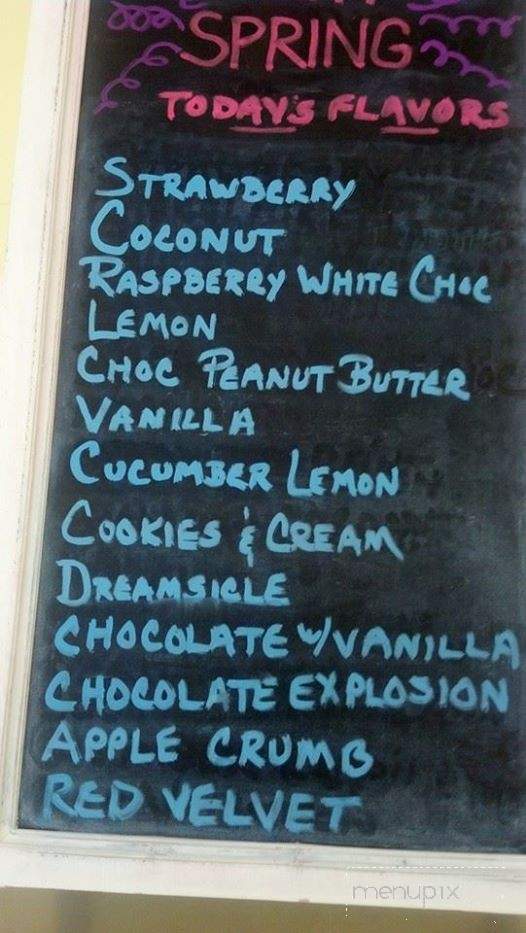 SPRING
TODAY'S FLAVORS
STRAWBERRY
COCONUT
RASPBERRY WHITE CHOC
LEMON
CHOC PEANUT BUTTER
VANILLA
CUCUMBER LEMON
COOKIES & CREAM
DREAMSICLE
CHOCOLATE W/VANILLA
CHOCOLATE EXPLOSION
APPLE CRUMB
RED VELVET
menupix